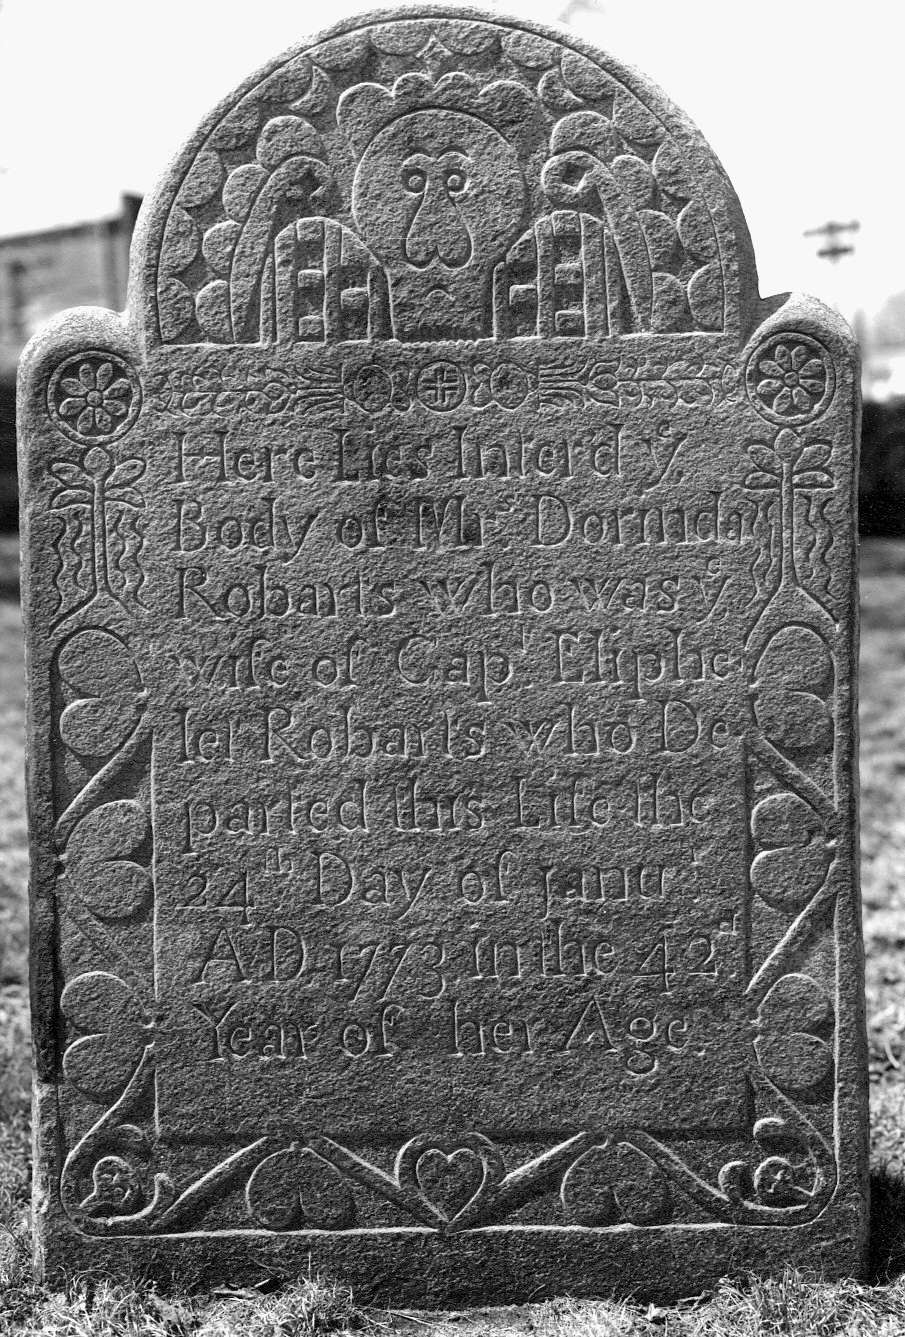 Here Lies Interd y
Body of Mrs Dorindal
Robarts who was y
wife of Capt Eliphe
let Robarts who De
parted this Life the
24th Day of janur
A D 1773 in the 42d
Year of her Age